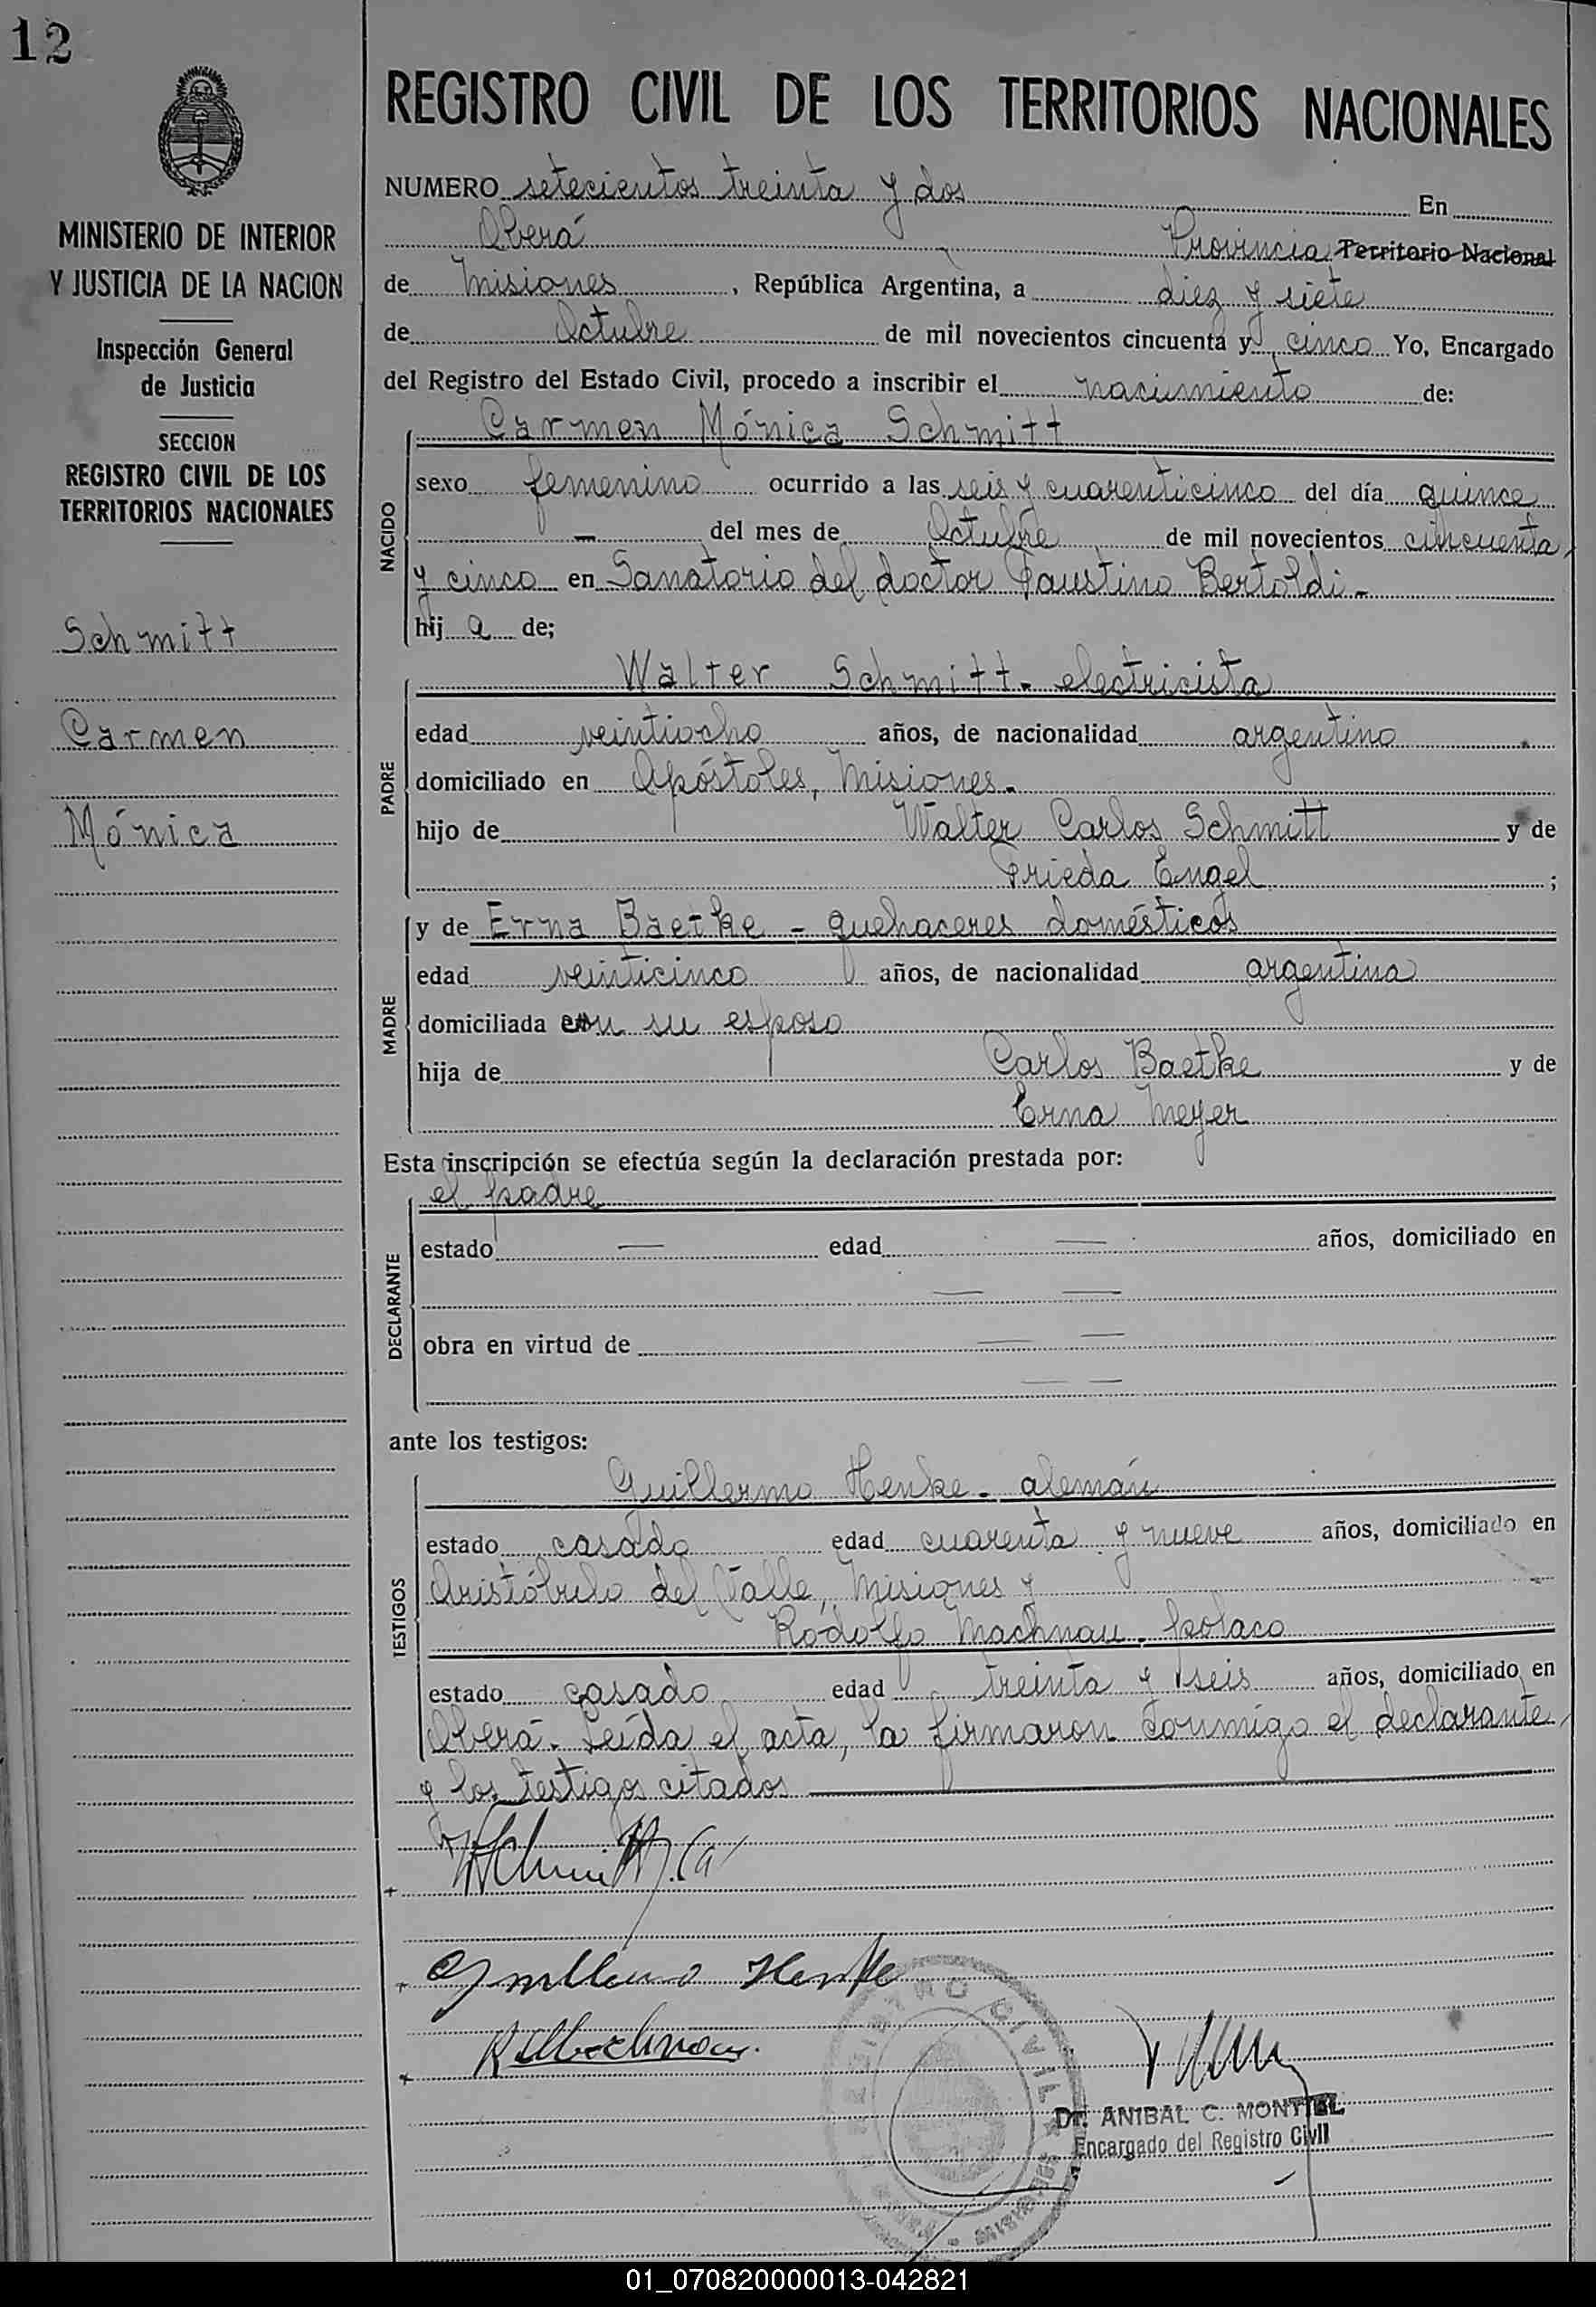 12
MINISTERIO DE INTERIOR
Y JUSTICIA DE LA NACION
Inspección General
de Justicia
SECCION
REGISTRO CIVIL DE LOS
TERRITORIOS NACIONALES
Schmitt
Carmen
Mónica
REGISTRO CIVIL DE LOS TERRITORIOS NACIONALES
NUMERO setecientos treinta y dos En
Oberá Provincia Territorio Nacional
de Misiones, República Argentina, a diez y siete
de Octubre de mil novecientos cincuenta y cinco Yo, Encargado
del Registro del Estado Civil, procedo a inscribir el nacimiento de:
NACIDO
Carmen Mónica Schmitt
sexo femenino ocurrido a las seis y cuarenticinco del día quince
— del mes de Octubre de mil novecientos cincuenta
y cinco en Sanatorio del doctor Faustino Bertoldi.-
hij a de;
PADRE
Walter Schmitt - electricista
edad veintiocho años, de nacionalidad argentino
domiciliado en Apóstoles, Misiones.
hijo de Walter Carlos Schmitt y de
Frieda Engel ;
MADRE
y de Erna Baetke - quehaceres domésticos
edad veinticinco años, de nacionalidad argentina
domiciliada con su esposo
hija de Carlos Baetke y de
Erna Meyer
Esta inscripción se efectúa según la declaración prestada por:
DECLARANTE
el padre
estado — edad — años, domiciliado en
— —
obra en virtud de — —
— —
ante los testigos:
TESTIGOS
Guillermo Henke - alemán
estado casado edad cuarenta y nueve años, domiciliado en
Aristóbulo del Valle, Misiones y
Rodolfo Machnau - polaco
estado casado edad treinta y seis años, domiciliado en
Oberá. Leída el acta, la firmaron conmigo el declarante
y los testigos citados
Guillermo Henke
R Machnau.
REGISTRO CIVIL
Dr. ANIBAL C. MONTIEL
Encargado del Registro Civil
01_070820000013-042821